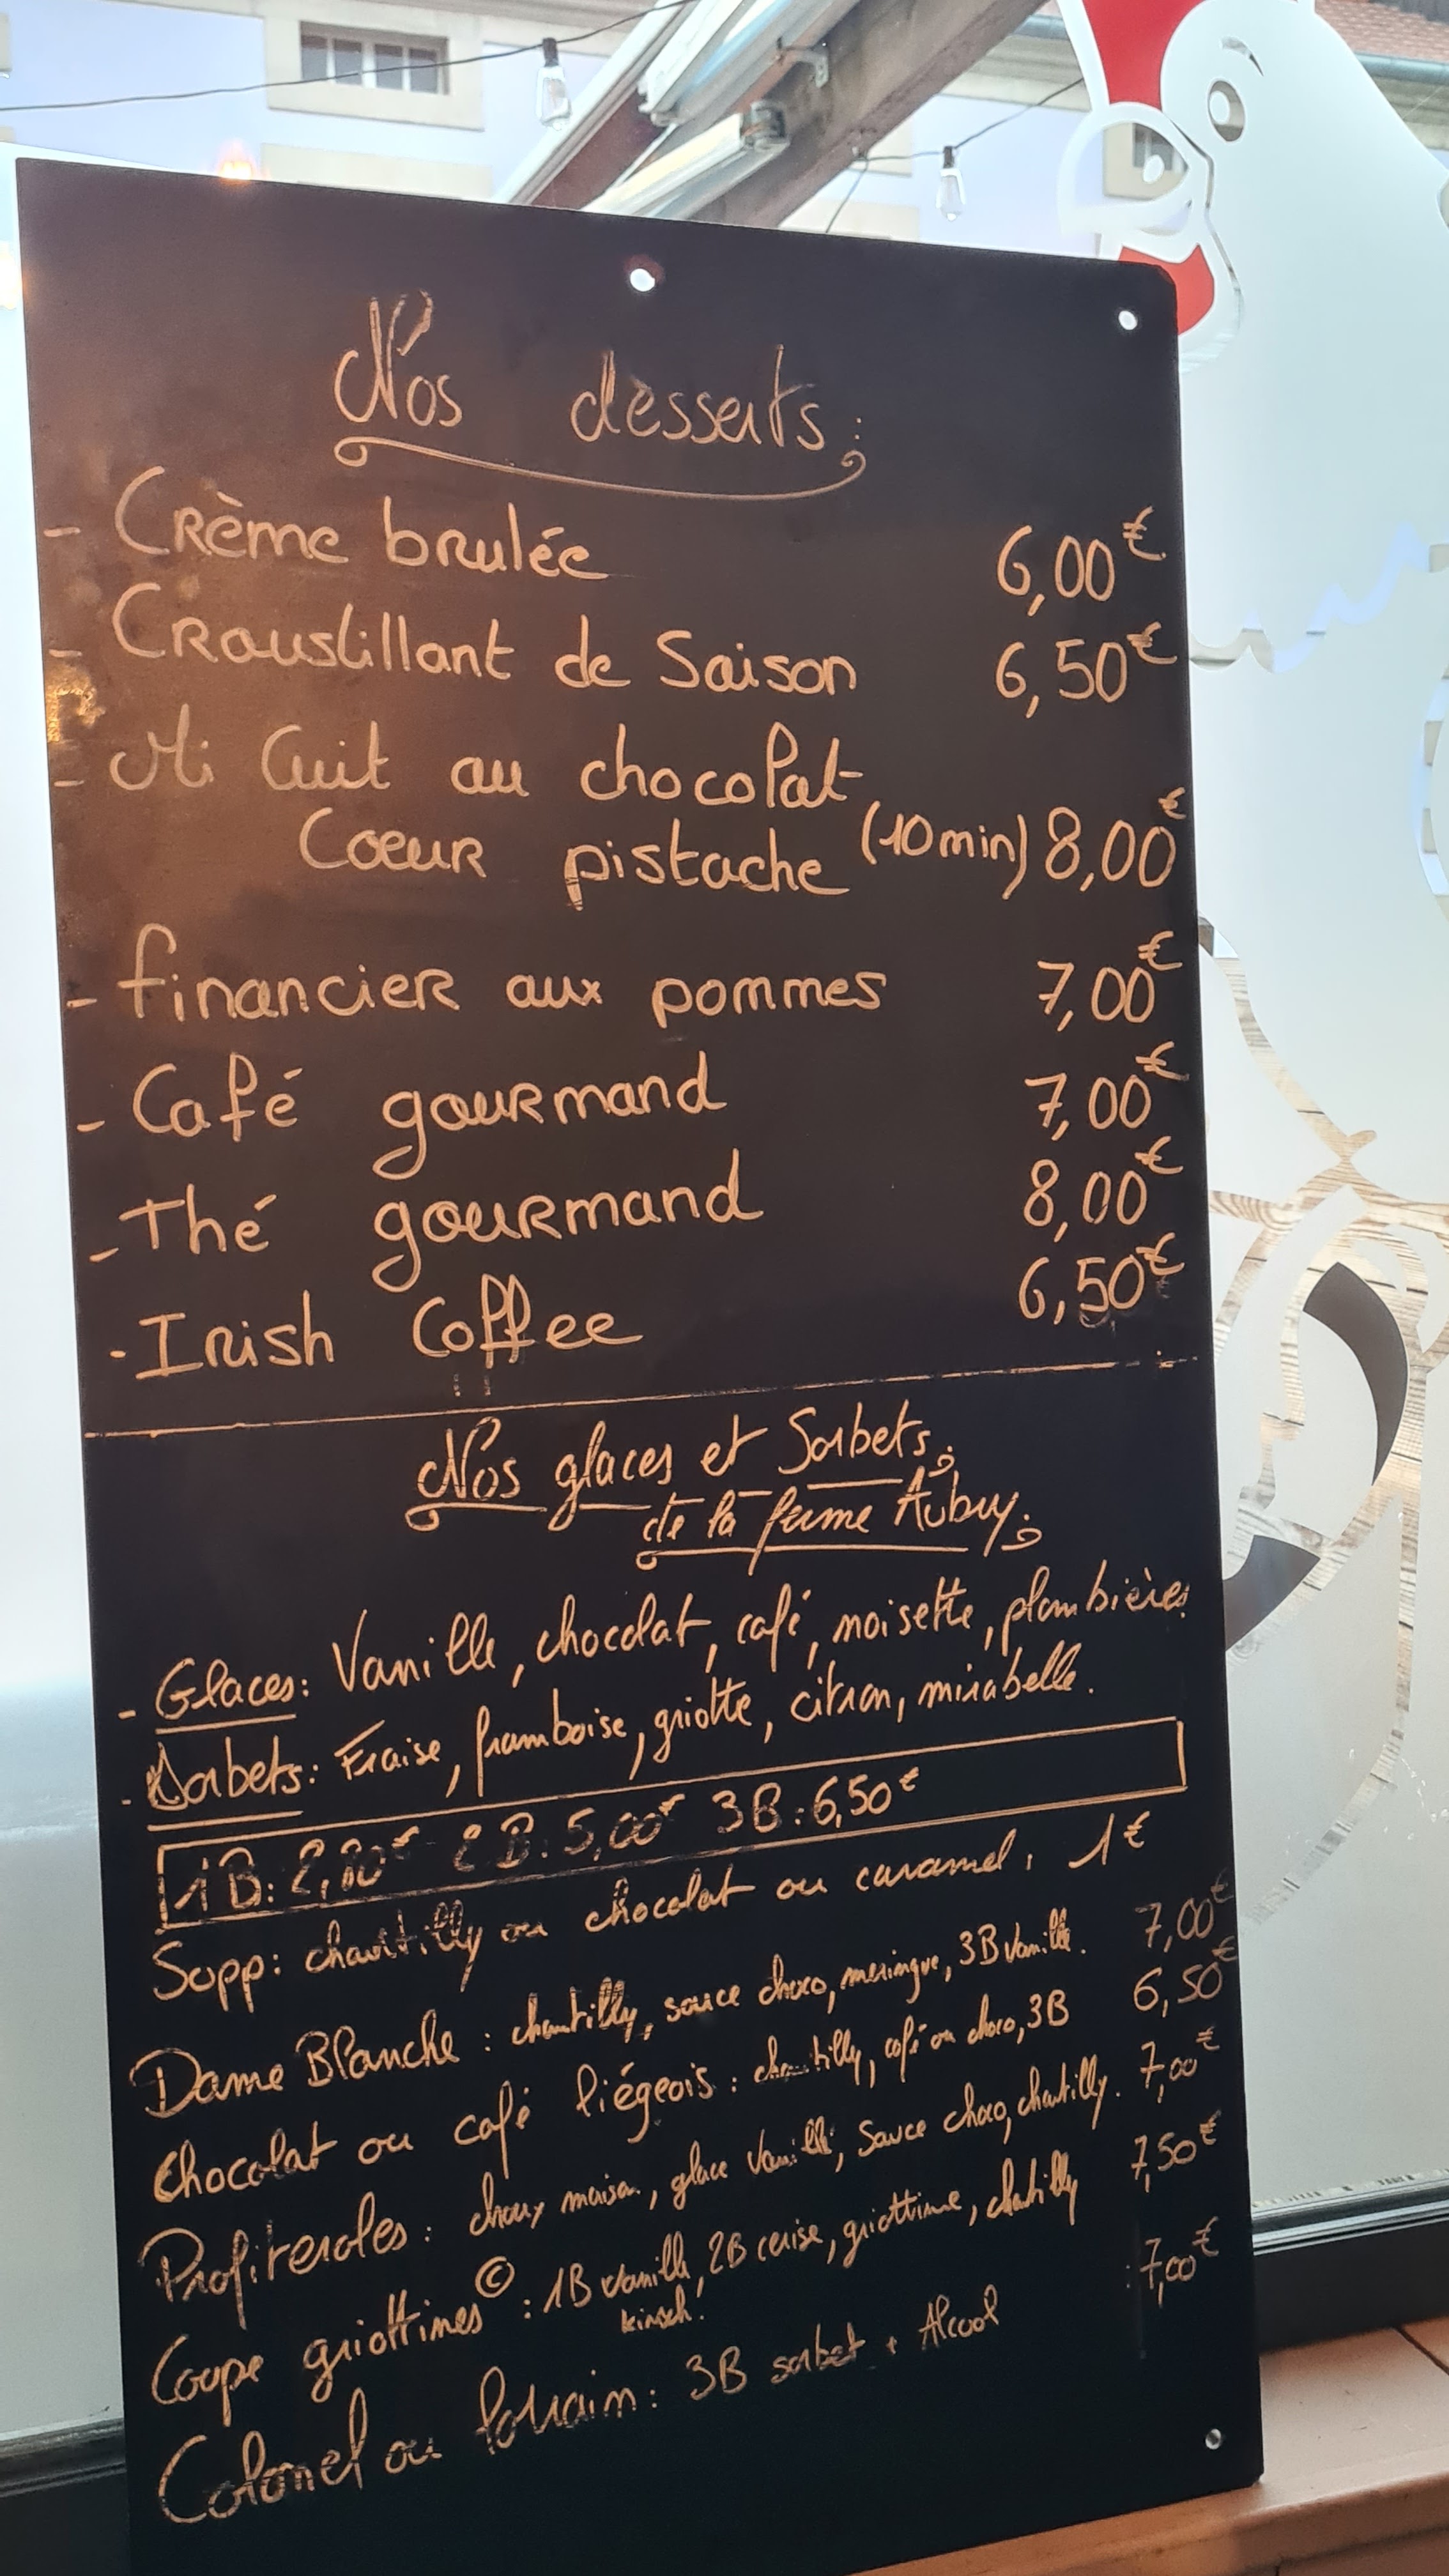 Nos desserts:
- Crème brulée 6,00€
- Croustillant de Saison 6,50€
- Mi Cuit au chocolat
Coeur pistache (10min) 8,00€
- financier aux pommes 7,00€
- Café gourmand 7,00€
- Thé gourmand 8,00€
- Irish Coffee 6,50€
Nos glaces et Sorbets
de la ferme Aubry.
- Glaces: Vanille, chocolat, café, noisette, plombières
- Sorbets: Fraise, framboise, griotte, citron, mirabelle.
1B: 2,80€ 2B: 5,00€ 3B: 6,50€
Supp: chantilly ou chocolat ou caramel, 1€
Dame Blanche: chantilly, sauce choco, meringue, 3B vanille. 7,00€
Chocolat ou café liégeois: chantilly, café ou choco, 3B 6,50€
Profiteroles: choux maison, glace vanille, sauce choco, chantilly. 7,00€
Coupe griottines ©: 1B vanille, 2B cerise, griottine, chatilly 7,50€
kirsch.
Colonel ou lorrain: 3B sorbet + Alcool :7,00€